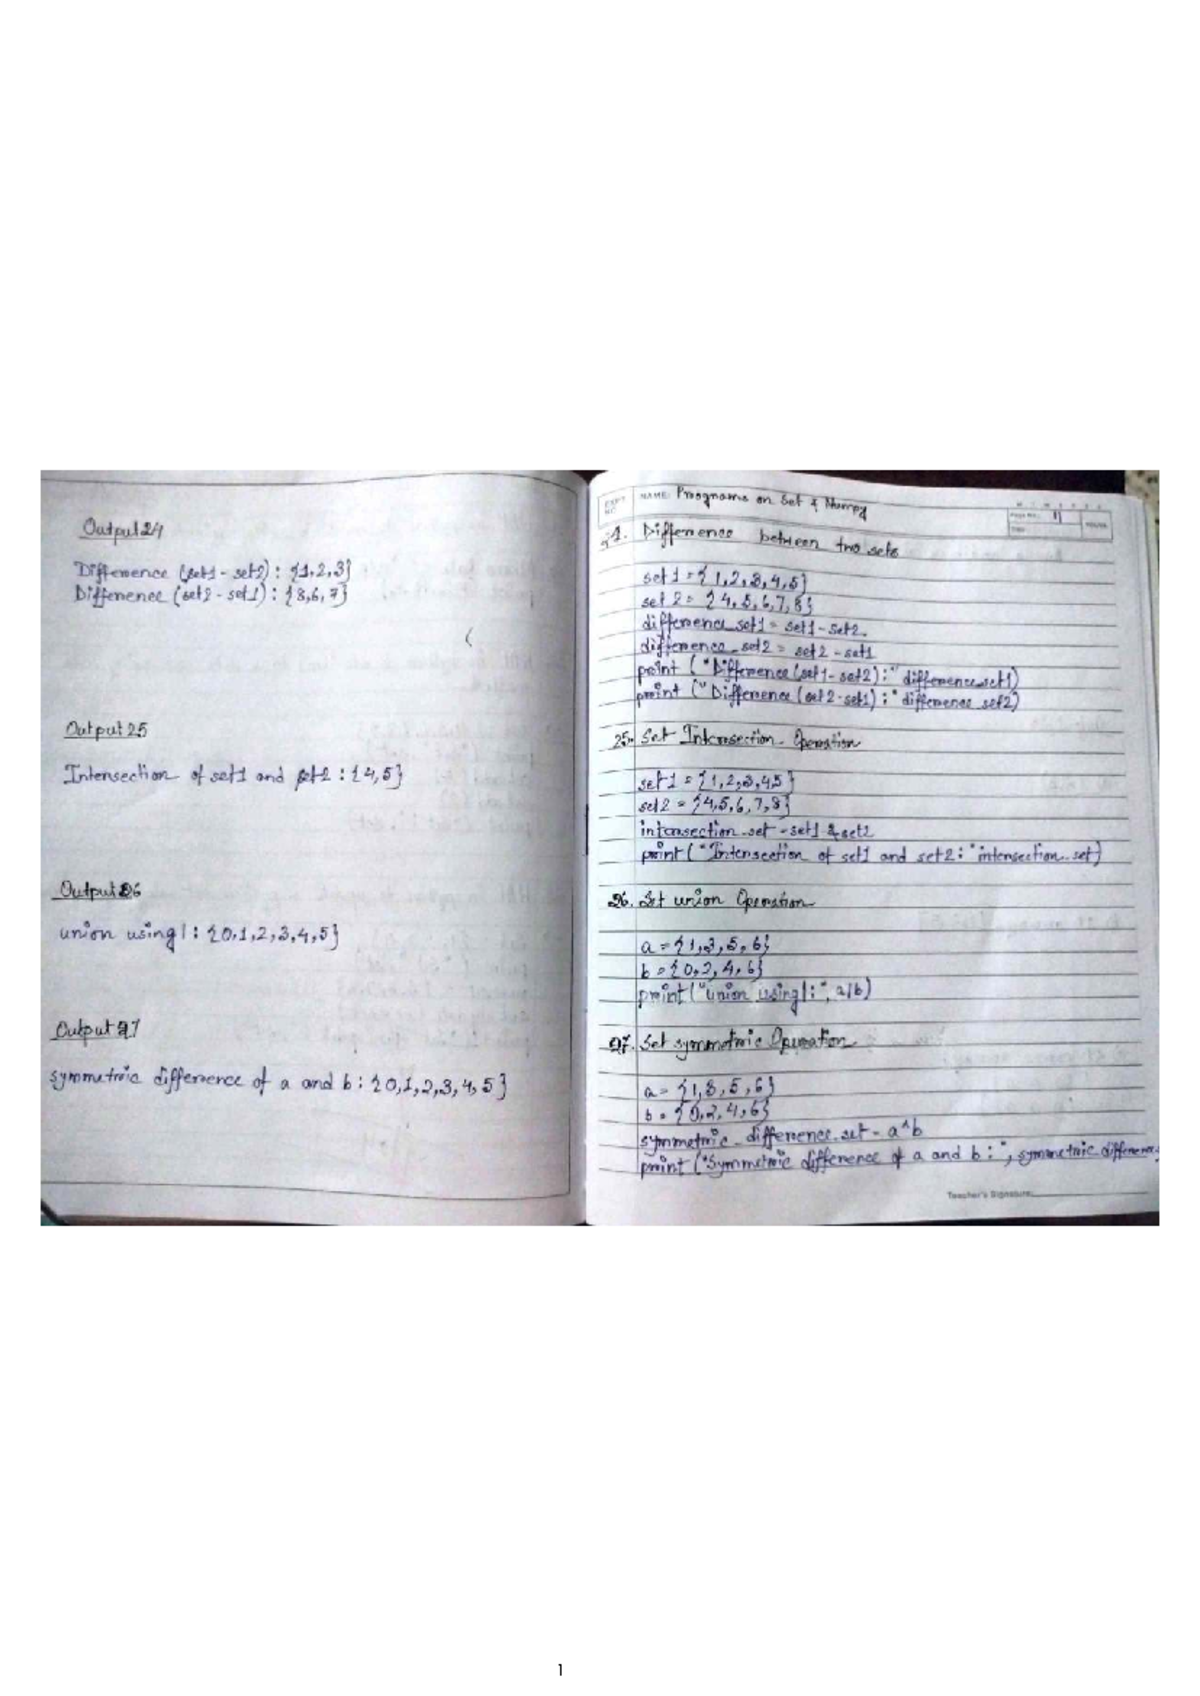 Output 24
Difference (set1 - set2) : {1,2,3}
Difference (set2 - set1) : {8,6,7}
Output 25
Intersection of set1 and set2 : {4,5}
Output 26
union using | : {0,1,2,3,4,5}
Output 27
symmetric difference of a and b : {0,1,2,3,4,5}
NAME: Programs on Set & Numpy
Page No. 11
Difference between two sets
set1 = {1,2,3,4,5}
set2 = {4,5,6,7,8}
difference_set1 = set1 - set2
difference_set2 = set2 - set1
print ("Difference (set1 - set2) :" difference_set1)
print ("Difference (set2 - set1) :" difference set2)
25. Set Intersection Operation
set1 = {1,2,3,4,5}
set2 = {4,5,6,7,8}
intersection_set = set1 & set2
print ("Intersection of set1 and set2 : "intersection_set)
26. Set union Operation
a = {1,3,5,6}
b = {0,2,4,6}
print ("union using | :", a|b)
27. Set symmetric Operation
a = {1,3,5,6}
b = {0,2,4,6}
symmetric_difference_set = a^b
print ("Symmetric difference of a and b :", symmetric difference
Teacher's Signature:
1